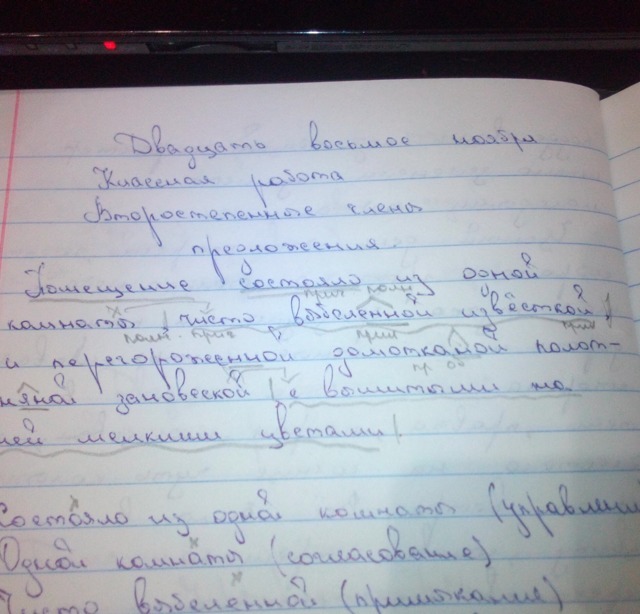 Двадцать восьмое ноября
Классная работа
Второстепенные члены
предложения
Помещение состояло из одной
прич полн
комнаты, чисто выбеленной извёсткой,
полн. прич прил прил
и перегороженной домотканой полот-
пр.
няной зановеской, с вышитыми на
ней мелкими цветами.
Состояло из одной комнаты (управлени
Одной комнаты (согласование)
Чисто выбеленной (примыкание)